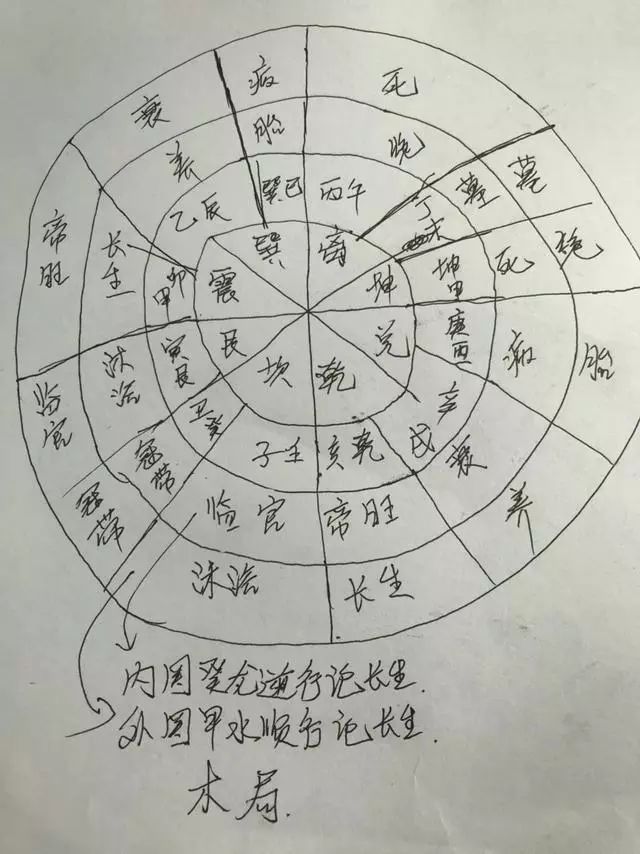 衰 病 死
养 胎 绝
帝旺 长生 乙辰 巽巳 丙午 丁未 墓 墓
甲卯 震 巽 离 坤 坤申 死 绝
临官 沐浴 寅艮 艮 坎 乾 兑 庚酉 病 胎
冠带 冠带 丑癸 子壬 亥乾 戌辛 衰 养
临官 帝旺
沐浴 长生
内圈癸龙逆行论长生.
外圈甲水顺行论长生.
木局.